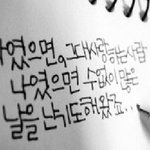 나였으면, 그대 사랑하는 사람
나였으면 수없이 많은
날을 난 기도해왔죠...